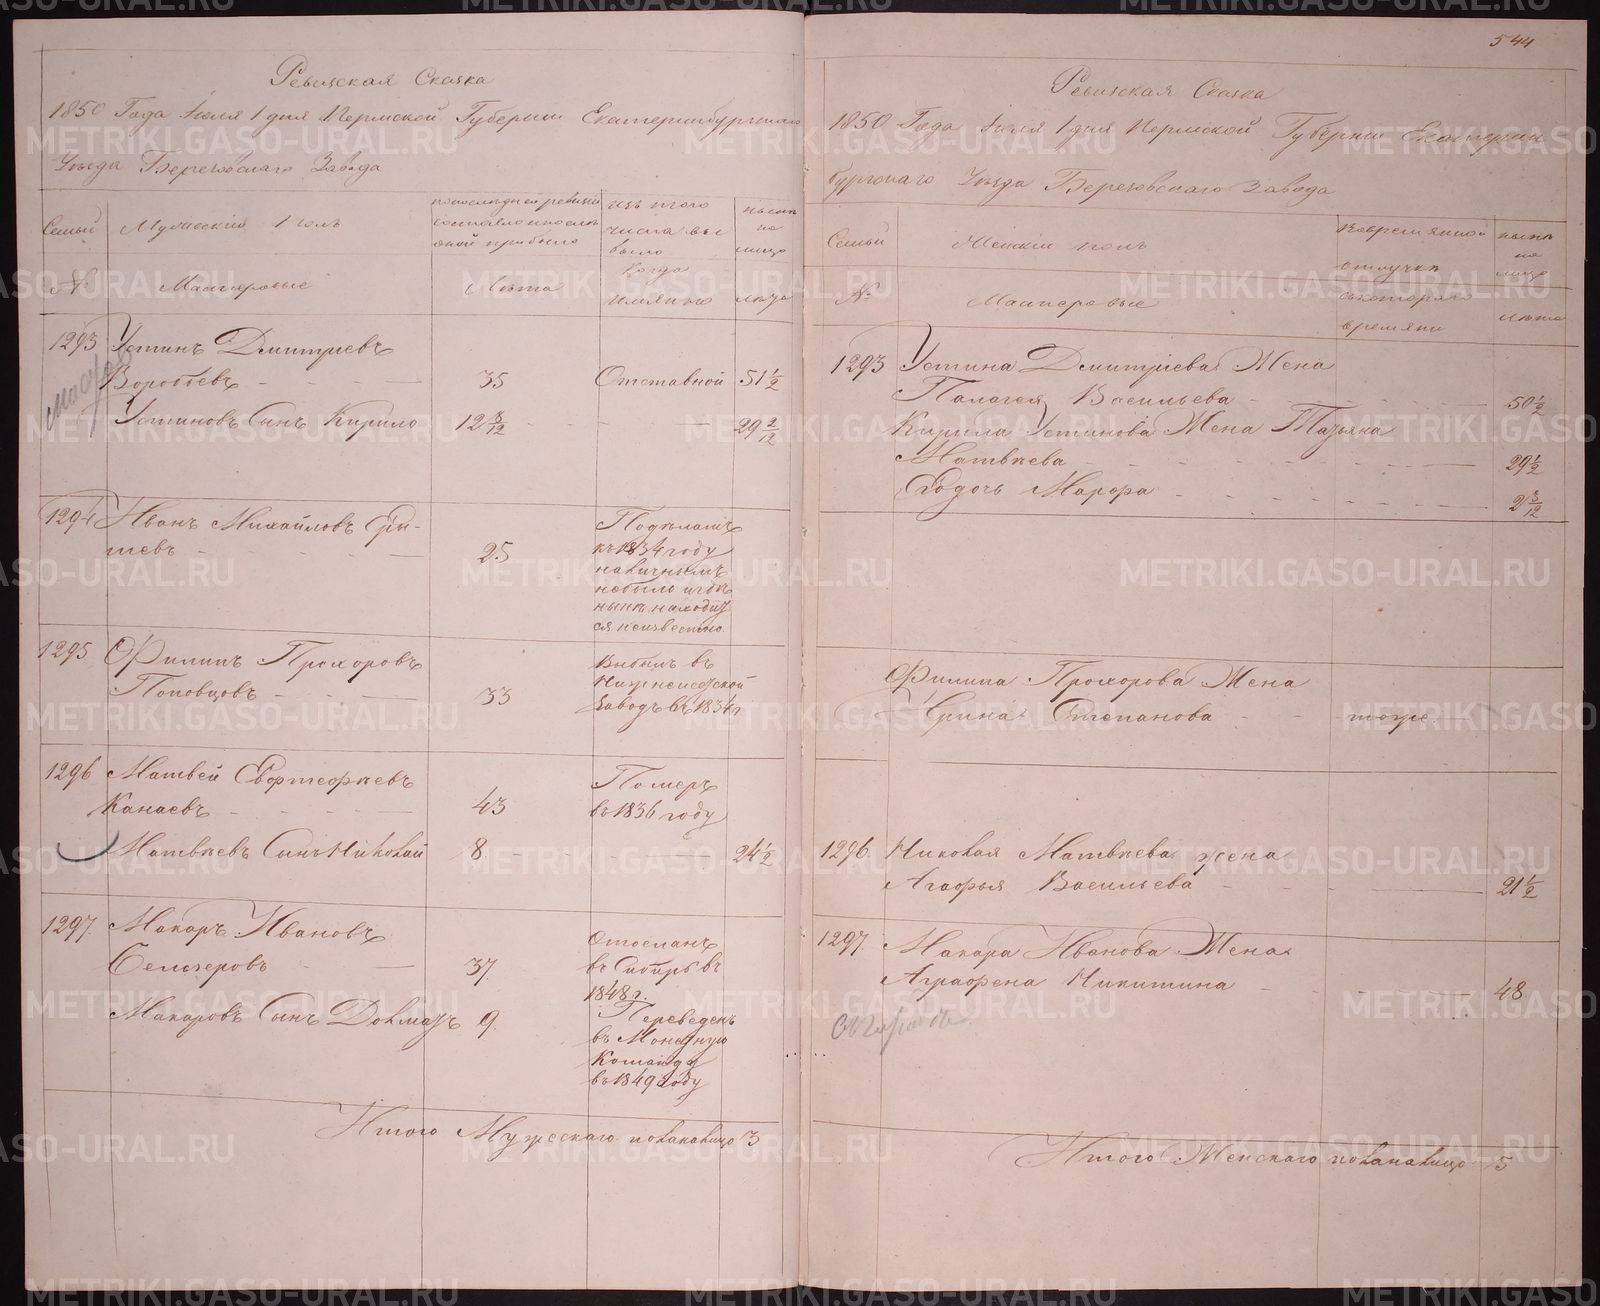 Ревизская Сказка
1850 Года Июля 1 дня Пермской Губернии Екатеринбургскаго
Уезда Березовскаго Завода
Семьи
Мужеский полъ
последней ревизии
состояло и после
оной прибыло
изъ того
числа вы
было
ныне
на
лицо
№
Мастеровые
Лета
Когда
имянно
лета
1293
Устинъ Дмитриевъ
Воробьевъ - - - - 35 Отставной 51 1/2
Устиновъ Сынъ Кирило 12 3/12 - - - 29 2/12
1294
Иванъ Михайловъ
25
въ 1834 году
ныне находит
ся неизвестно
1295
Филипъ Прохоровъ
Поповцовъ - - - 33
Выбылъ въ
Нижнеисетской
Заводъ въ 1834 г
1296
Матвей Евстефеевъ
Канаевъ - - - - 43
Померъ
въ 1836 году
Матвеевъ Сынъ Николай 8 - - - 24 1/2
1297.
Макаръ Ивановъ
Белозеровъ - - 37.
Отосланъ
въ Сибирь въ
1848 г.
Макаровъ Сынъ Долматъ 9.
Переведенъ
въ Монетную
Команду
въ 1849 году
Итого Мужескаго пола налицо 3
544
Ревизская Сказка
1850 Года Июля 1 дня Пермской Губернии Екатерин
бургскаго Уезда Березовскаго Завода
Семьи
Женский полъ
во временной
отлучке
ныне
на
лицо
№
Мастеровые
съ котораго
времяни
лета
1293
Устина Дмитриева Жена
Палагея Васильева - - - 50 1/2
Кирила Устинова Жена Татьяна
Матвеева - - - 29 1/2
Дочь Марфа - - - 2 3/12
Филипа Прохорова Жена
Ирина Степанова - - тоже.
1296
Николая Матвеева жена
Агафья Васильева - - - 21 1/2
1297.
Макара Иванова Жена
Аграфена Никитина - - - 48
Итого Женскаго пола налицо 5
METRIKI.GASO-URAL.RU